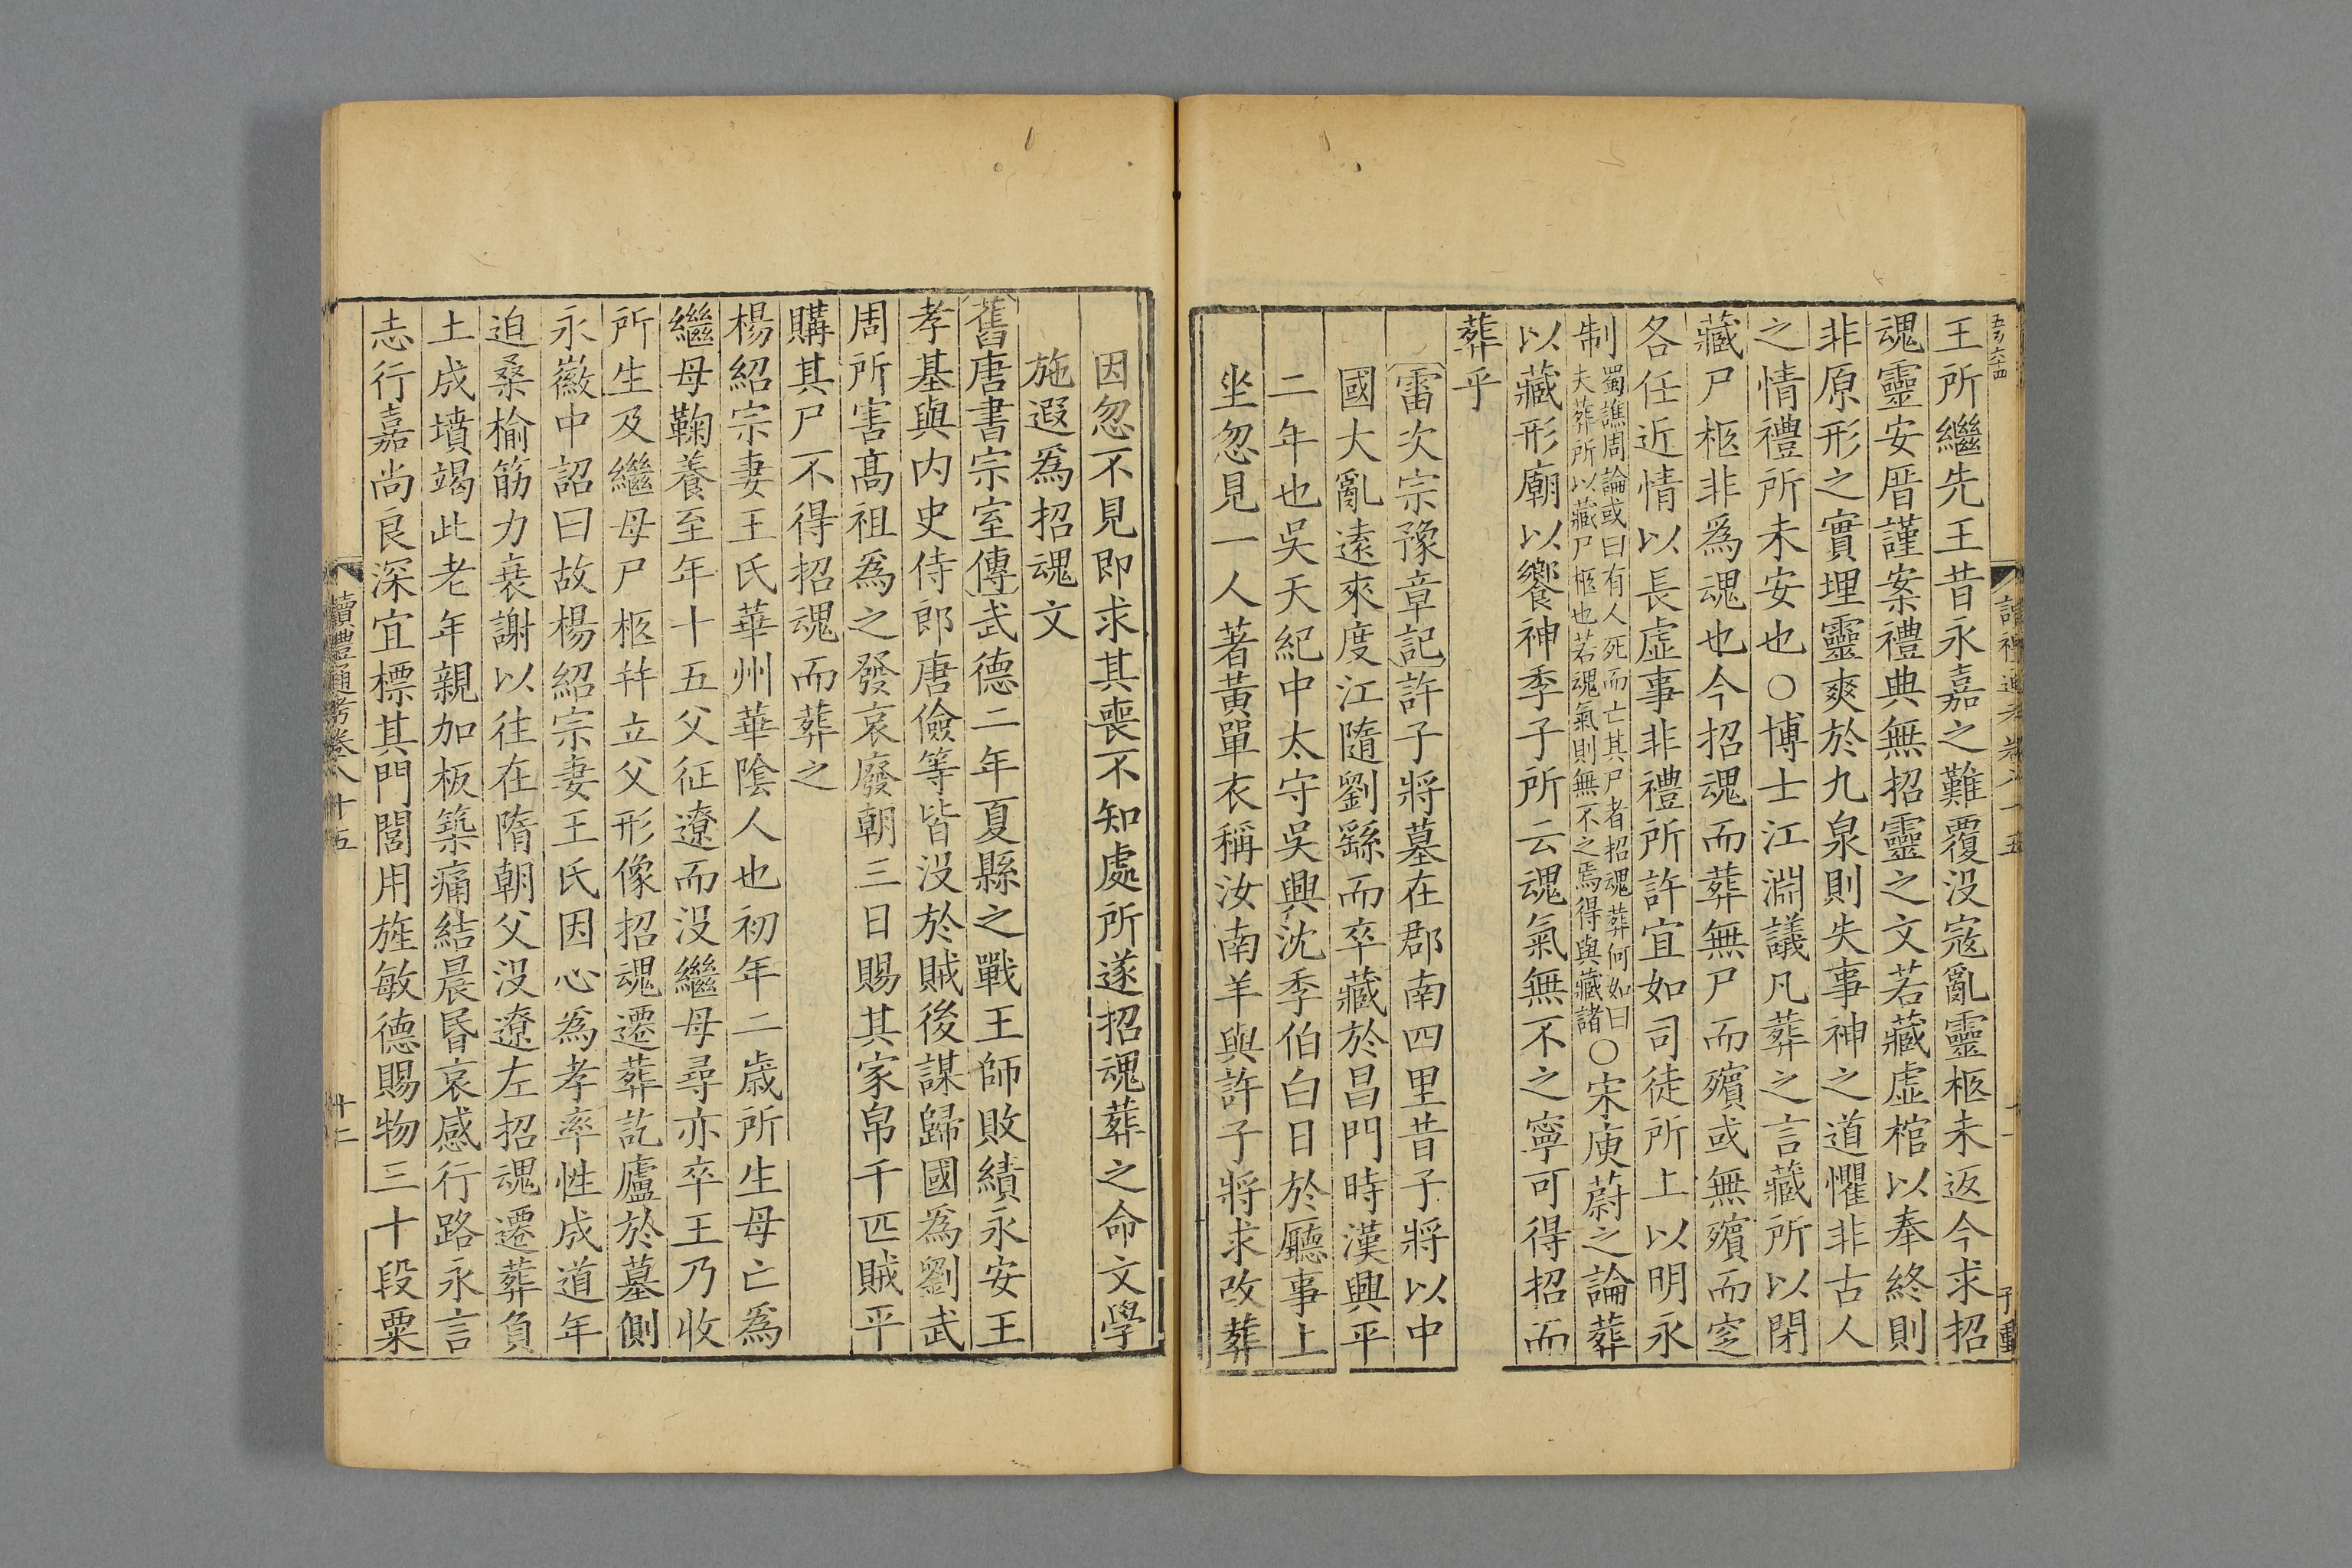 五百六十四
讀禮通考卷八十五
王所繼先王昔永嘉之難覆没宼亂靈柩未返今求招
魂靈安厝謹案禮典無招靈之文若藏虚棺以奉終則
非原形之實埋靈爽於九泉則失事神之道懼非古人
之情禮所未安也○博士江淵議凡葬之言藏所以閉
藏尸柩非爲魂也今招魂而葬無尸而殯或無殯而窆
各任近情以長虚事非禮所許宜如司徒所上以明永
制蜀譙周論或曰有人死而亡其尸者招魂葬何如曰夫葬所以藏尸柩也若魂氣則無不之焉得與藏諸○宋庾蔚之論葬
以藏形廟以饗神季子所云魂氣無不之寧可得招而
葬乎
雷次宗豫章記許子將墓在郡南四里昔子將以中
國大亂遠來度江隨劉繇而卒藏於昌門時漢興平
二年也吳天紀中太守吳興沈季伯白日於廳事上
坐忽見一人著黃單衣稱汝南羊與許子將求改葬
因忽不見即求其喪不知處所遂招魂葬之命文學
施遐爲招魂文
舊唐書宗室傳武德二年夏縣之戰王師敗績永安王
孝基與内史侍郎唐儉等皆没於賊後謀歸國爲劉武
周所害髙祖爲之發哀廢朝三日賜其家帛千匹賊平
購其尸不得招魂而葬之
楊紹宗妻王氏華州華陰人也初年二歲所生母亡爲
繼母鞠養至年十五父征遼而没繼母尋亦卒王乃收
所生及繼母尸柩幷立父形像招魂遷葬訖廬於墓側
永徽中詔曰故楊紹宗妻王氏因心爲孝率性成道年
迫桑榆筋力衰謝以往在隋朝父没遼左招魂遷葬負
土成墳竭此老年親加板築痛結晨昏哀感行路永言
志行嘉尚良深宜標其門閭用旌敏德賜物三十段粟
讀禮通考卷八十五
十二